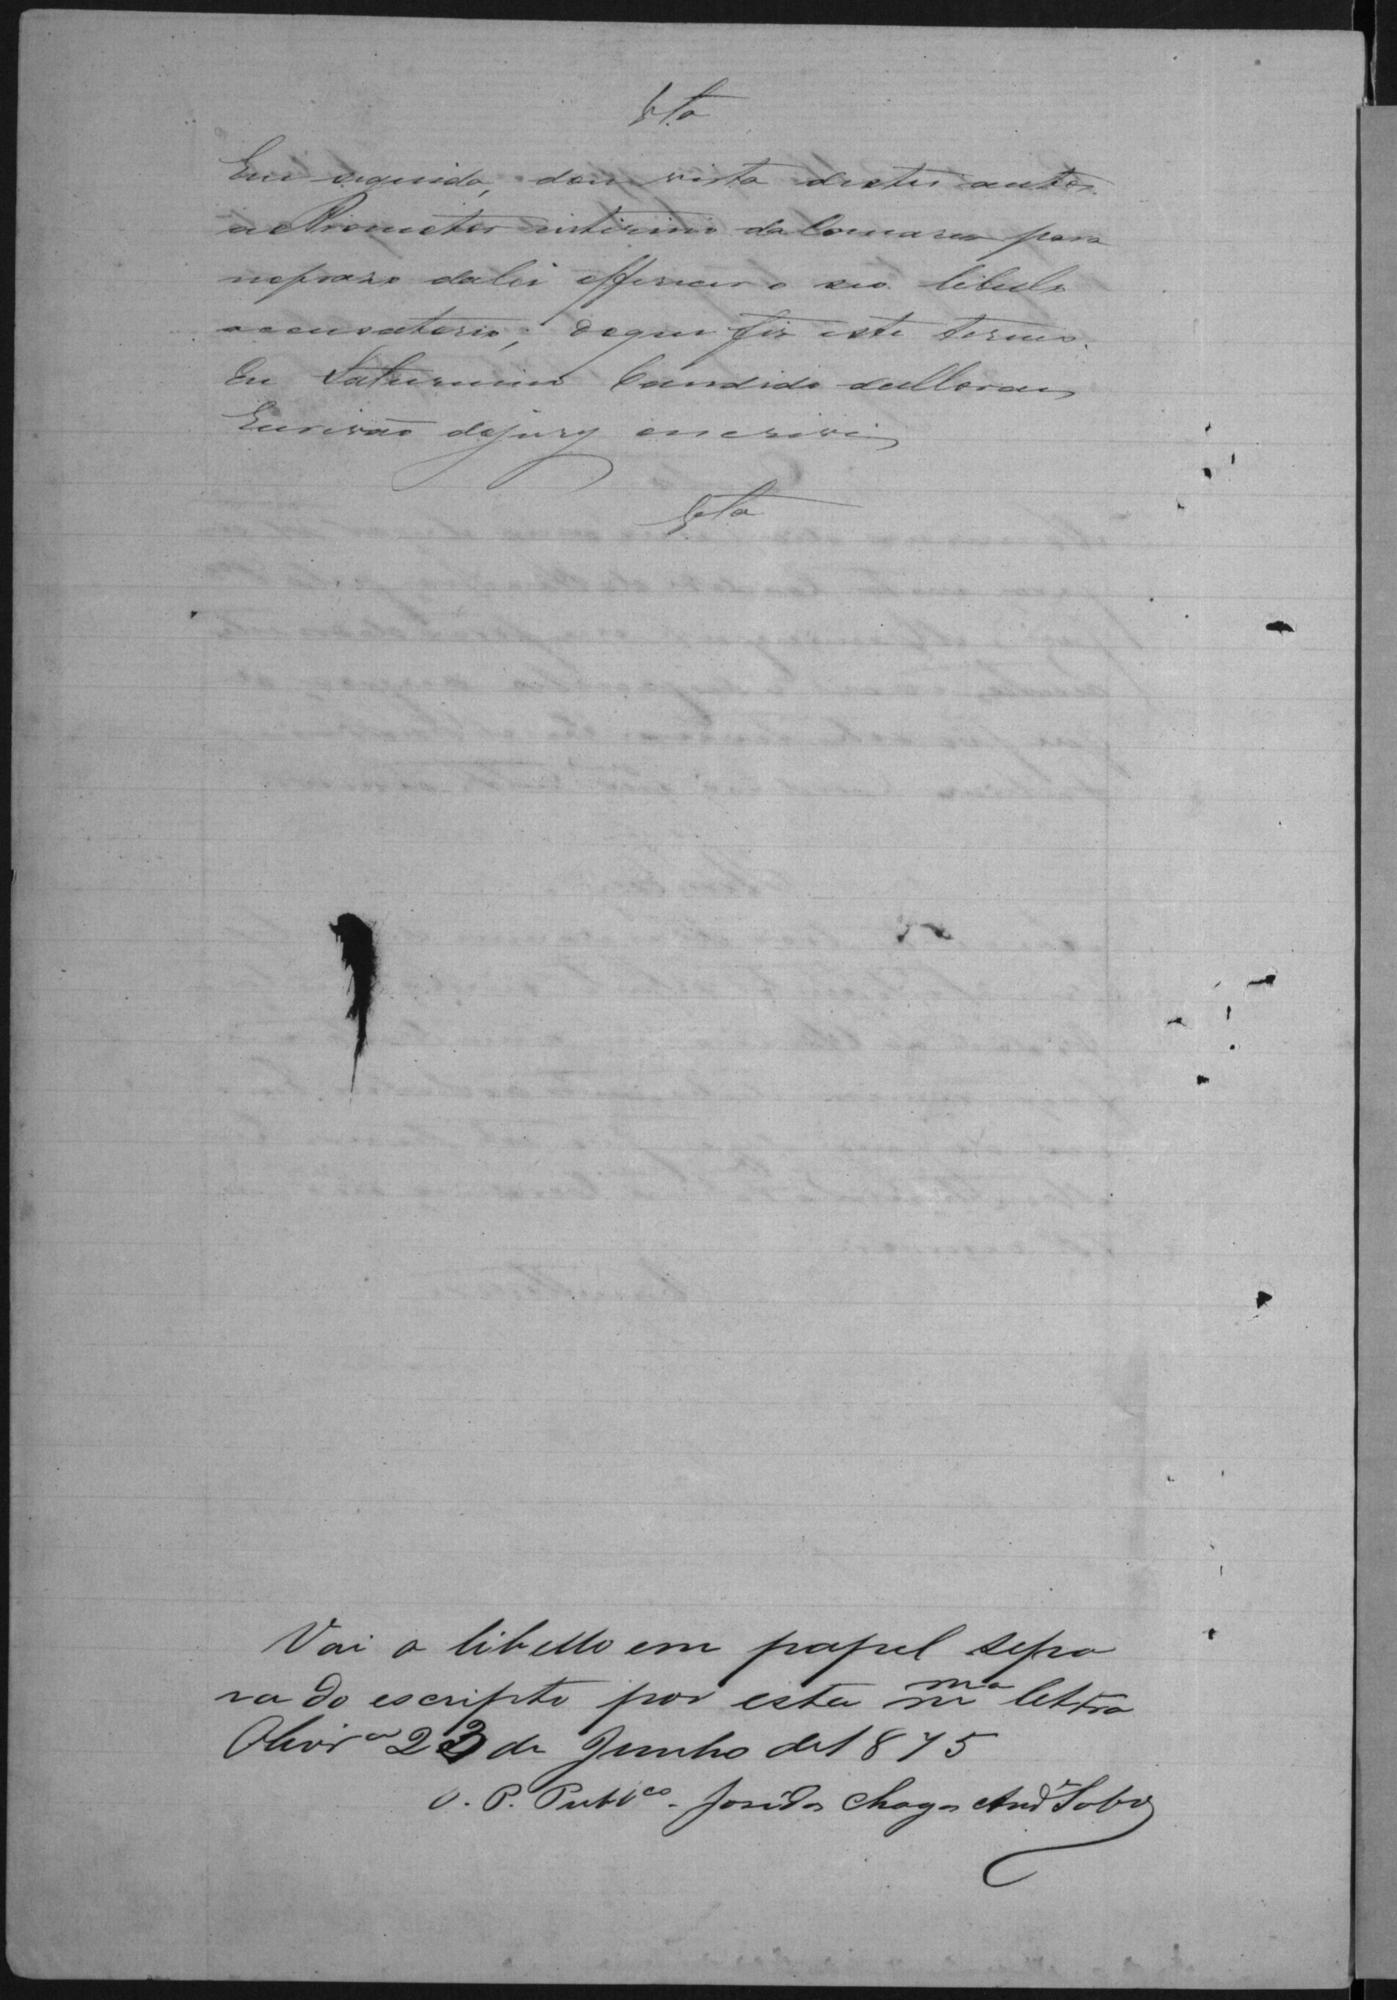 Vta
Em seguida, dou vista destes autos
ao Promotor intirino da Comarca para
no praso da lei offerecer o seo libello
accusatorio; do que fiz este termo.
Eu Saturnino Candido de Moraes
Escrivão do jury escrivi
Vta
Vai o libello em papel sepa
rado escripto por esta mma letra
Olivra 23 de Junho de 1875
O. P. Publco. José das Chagas Andr Sobro